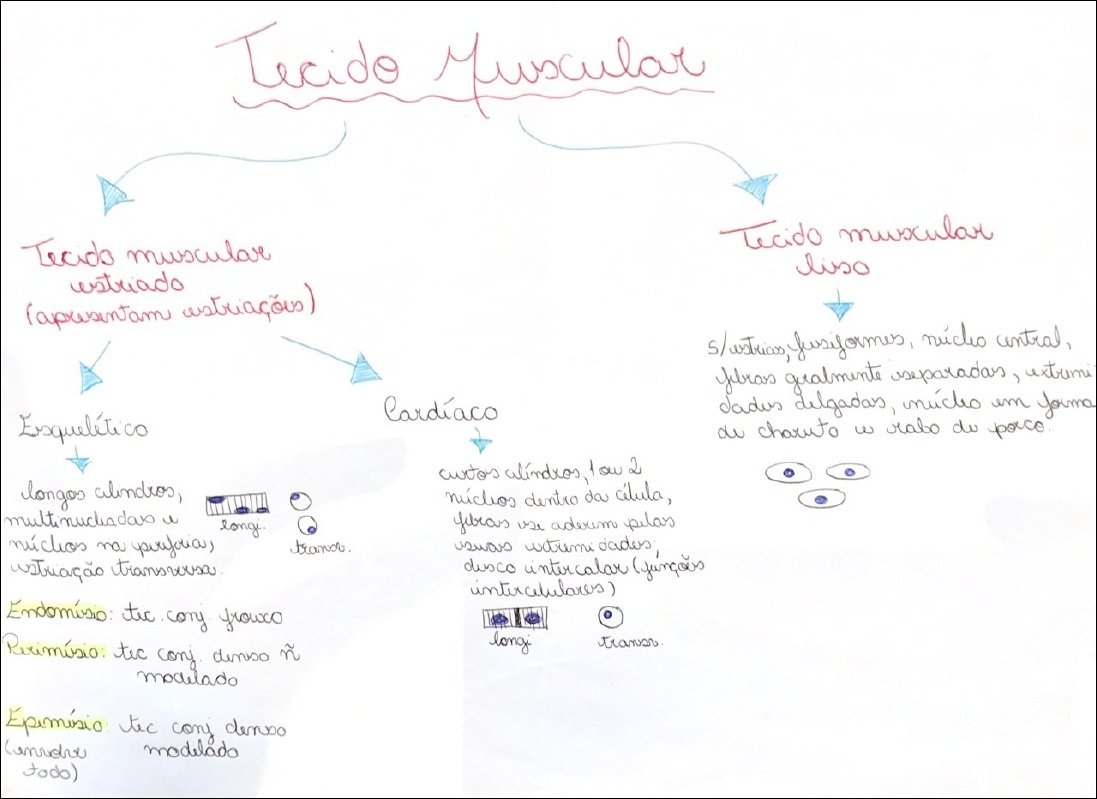 Tecido Muscular
Tecido muscular
estriado
(apresentam estriações)
Esquelético
longos cilindros,
multinucleadas e
núcleos na periferia,
estriação transversa.
longi.
transv.
Endomísio: tec. conj frouxo
Perimísio: tec conj. denso ñ
modelado
Epimísio: tec conj denso
(envolve modelado
todo)
Cardíaco
curtos cilindros, 1 ou 2
núcleos dentro da célula,
fibras se aderem pelas
suas extremidades,
disco intercalar (junções
intercelulares)
longi
transv.
Tecido muscular
liso
s/estrias, fusiformes, núcleo central,
fibras geralmente separadas, extremi
dades delgadas, núcleo em forma
de charuto e rabo de porco.